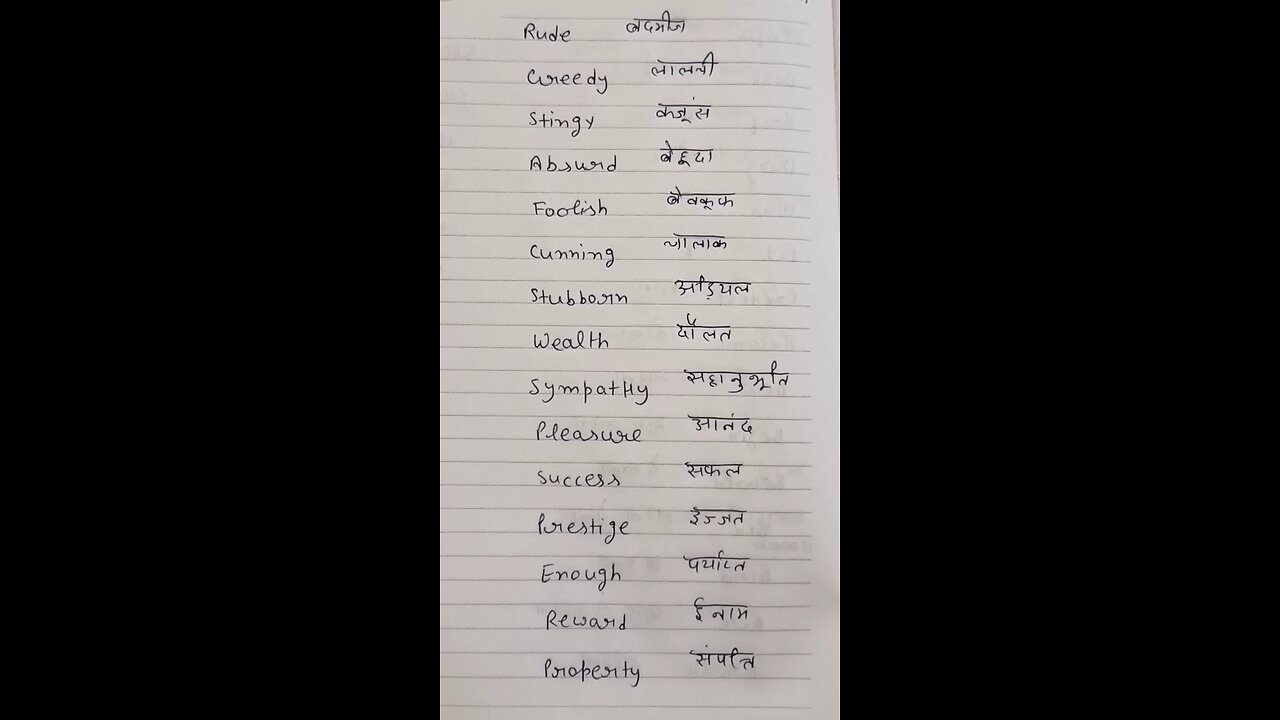 Rude बदमीज
Greedy लालची
Stingy कंजूस
Absurd बेहूदा
Foolish बेवकूफ
Cunning चालाक
Stubborn अड़ियल
Wealth दौलत
Sympathy सहानुभूति
Pleasure आनंद
Success सफल
Prestige इज्जत
Enough पर्याप्त
Reward ईनाम
Property संपत्ति